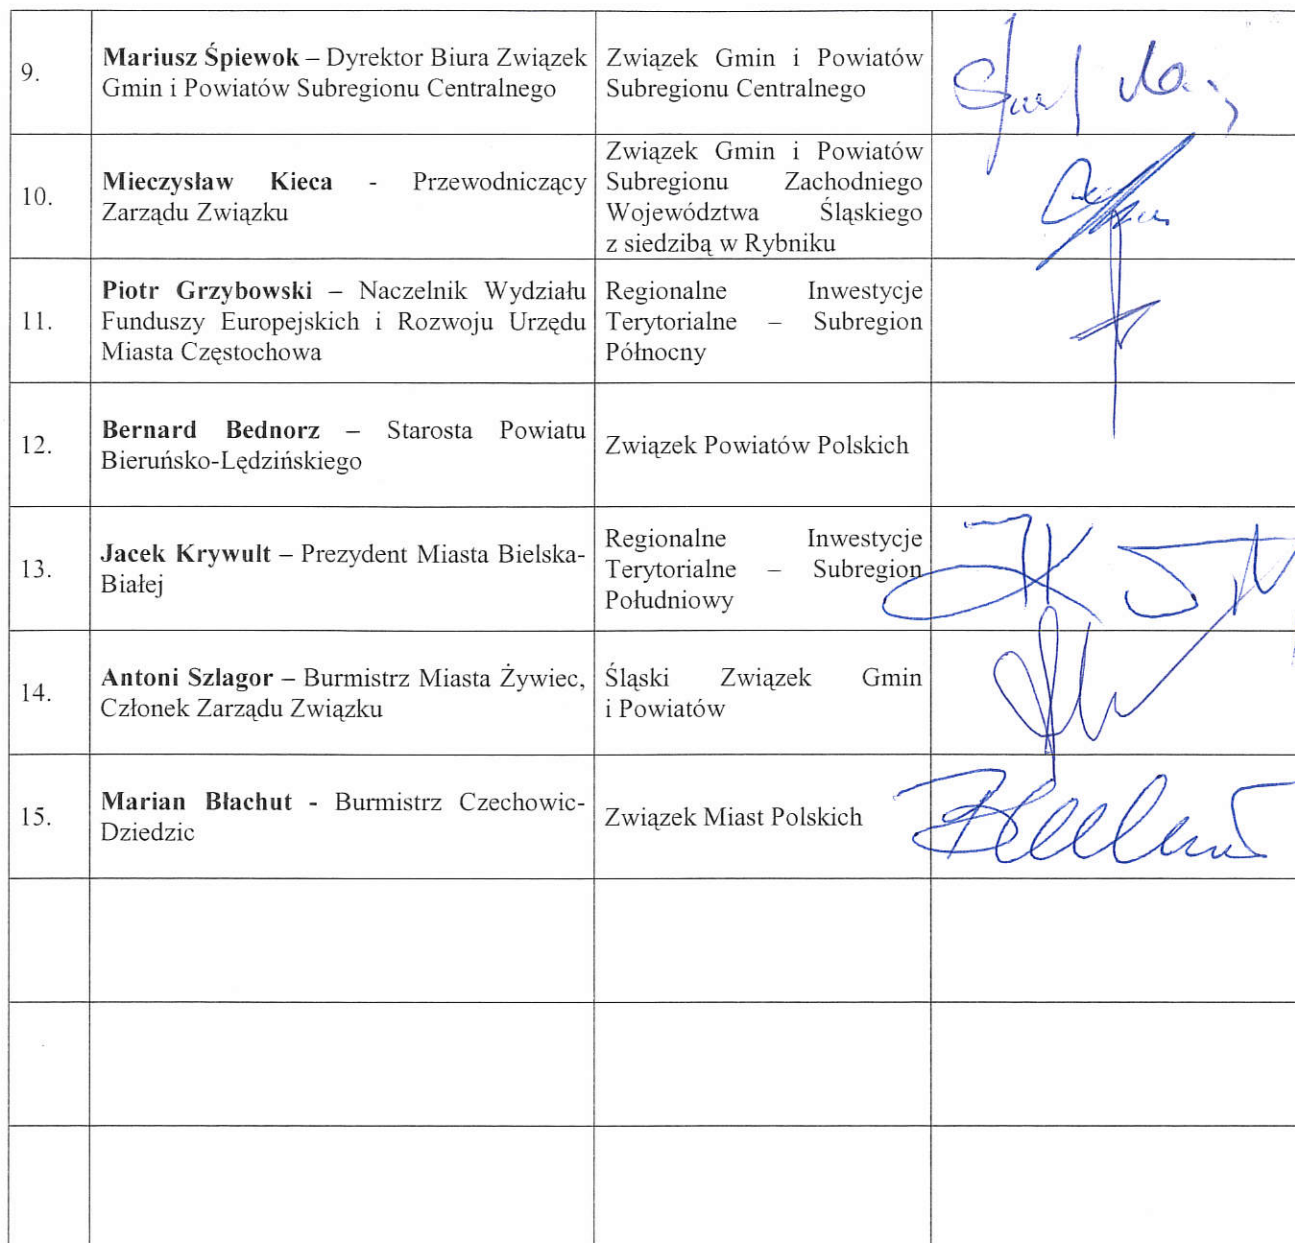 9.
Mariusz Śpiewok – Dyrektor Biura Związek
Gmin i Powiatów Subregionu Centralnego
Związek Gmin i Powiatów
Subregionu Centralnego
10.
Mieczysław Kieca - Przewodniczący
Zarządu Związku
Związek Gmin i Powiatów
Subregionu Zachodniego
Województwa Śląskiego
z siedzibą w Rybniku
11.
Piotr Grzybowski – Naczelnik Wydziału
Funduszy Europejskich i Rozwoju Urzędu
Miasta Częstochowa
Regionalne Inwestycje
Terytorialne – Subregion
Północny
12.
Bernard Bednorz – Starosta Powiatu
Bieruńsko-Lędzińskiego
Związek Powiatów Polskich
13.
Jacek Krywult – Prezydent Miasta Bielska-
Białej
Regionalne Inwestycje
Terytorialne – Subregion
Południowy
14.
Antoni Szlagor – Burmistrz Miasta Żywiec,
Członek Zarządu Związku
Śląski Związek Gmin
i Powiatów
15.
Marian Błachut - Burmistrz Czechowic-
Dziedzic
Związek Miast Polskich